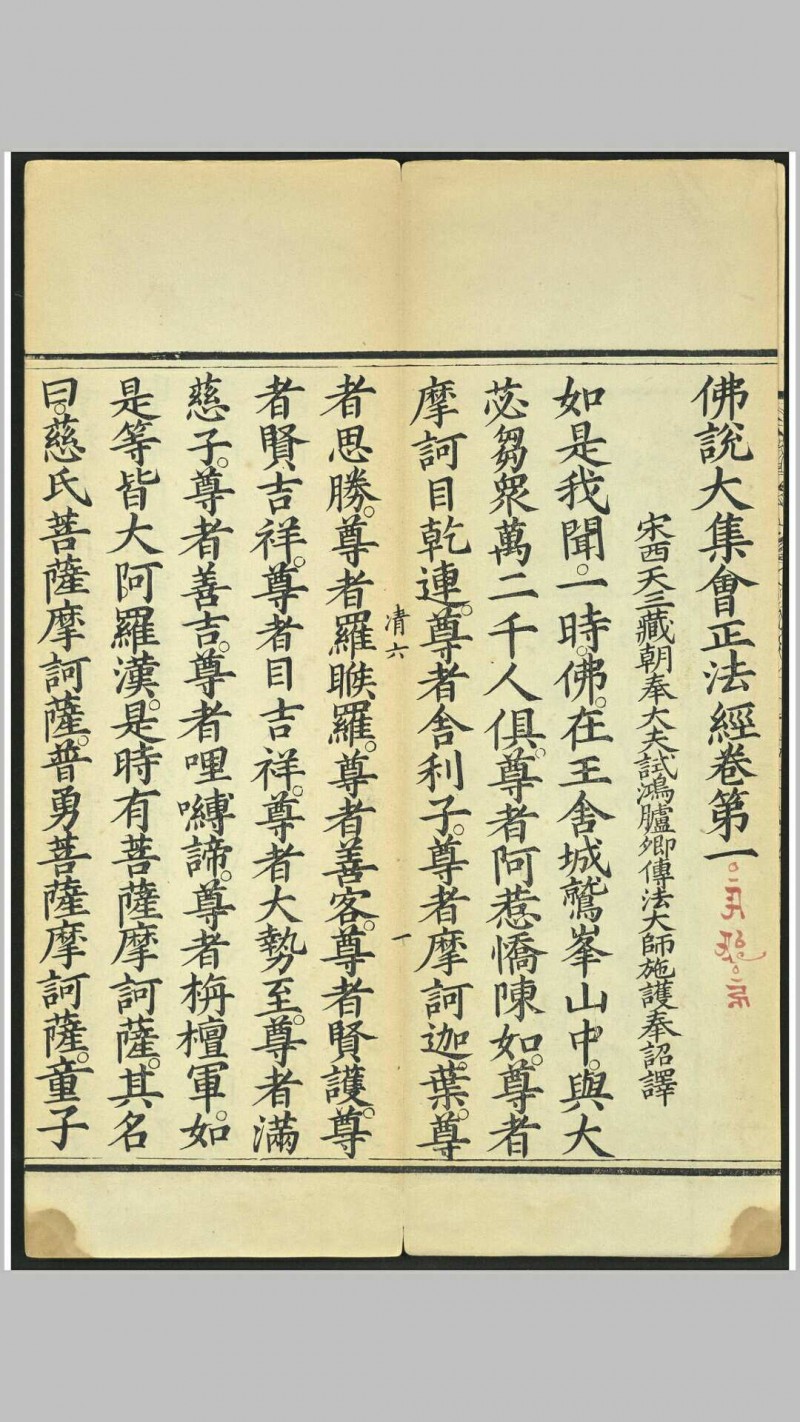 佛說大集會正法經卷第一
宋西天三藏朝奉大夫試鴻臚卿傳法大師施護奉詔譯
如是我聞。一時。佛。在王舍城鷲峯山中。與大
苾芻眾萬二千人俱。尊者阿惹憍陳如。尊者
摩訶目乾連。尊者舍利子。尊者摩訶迦葉。尊
清六
一
者思勝。尊者羅睺羅。尊者善客。尊者賢護。尊
者賢吉祥。尊者目吉祥。尊者大勢至。尊者滿
慈子。尊者善吉。尊者哩嚩諦。尊者栴檀軍。如
是等皆大阿羅漢。是時有菩薩摩訶薩。其名
曰。慈氏菩薩摩訶薩。普勇菩薩摩訶薩。童子